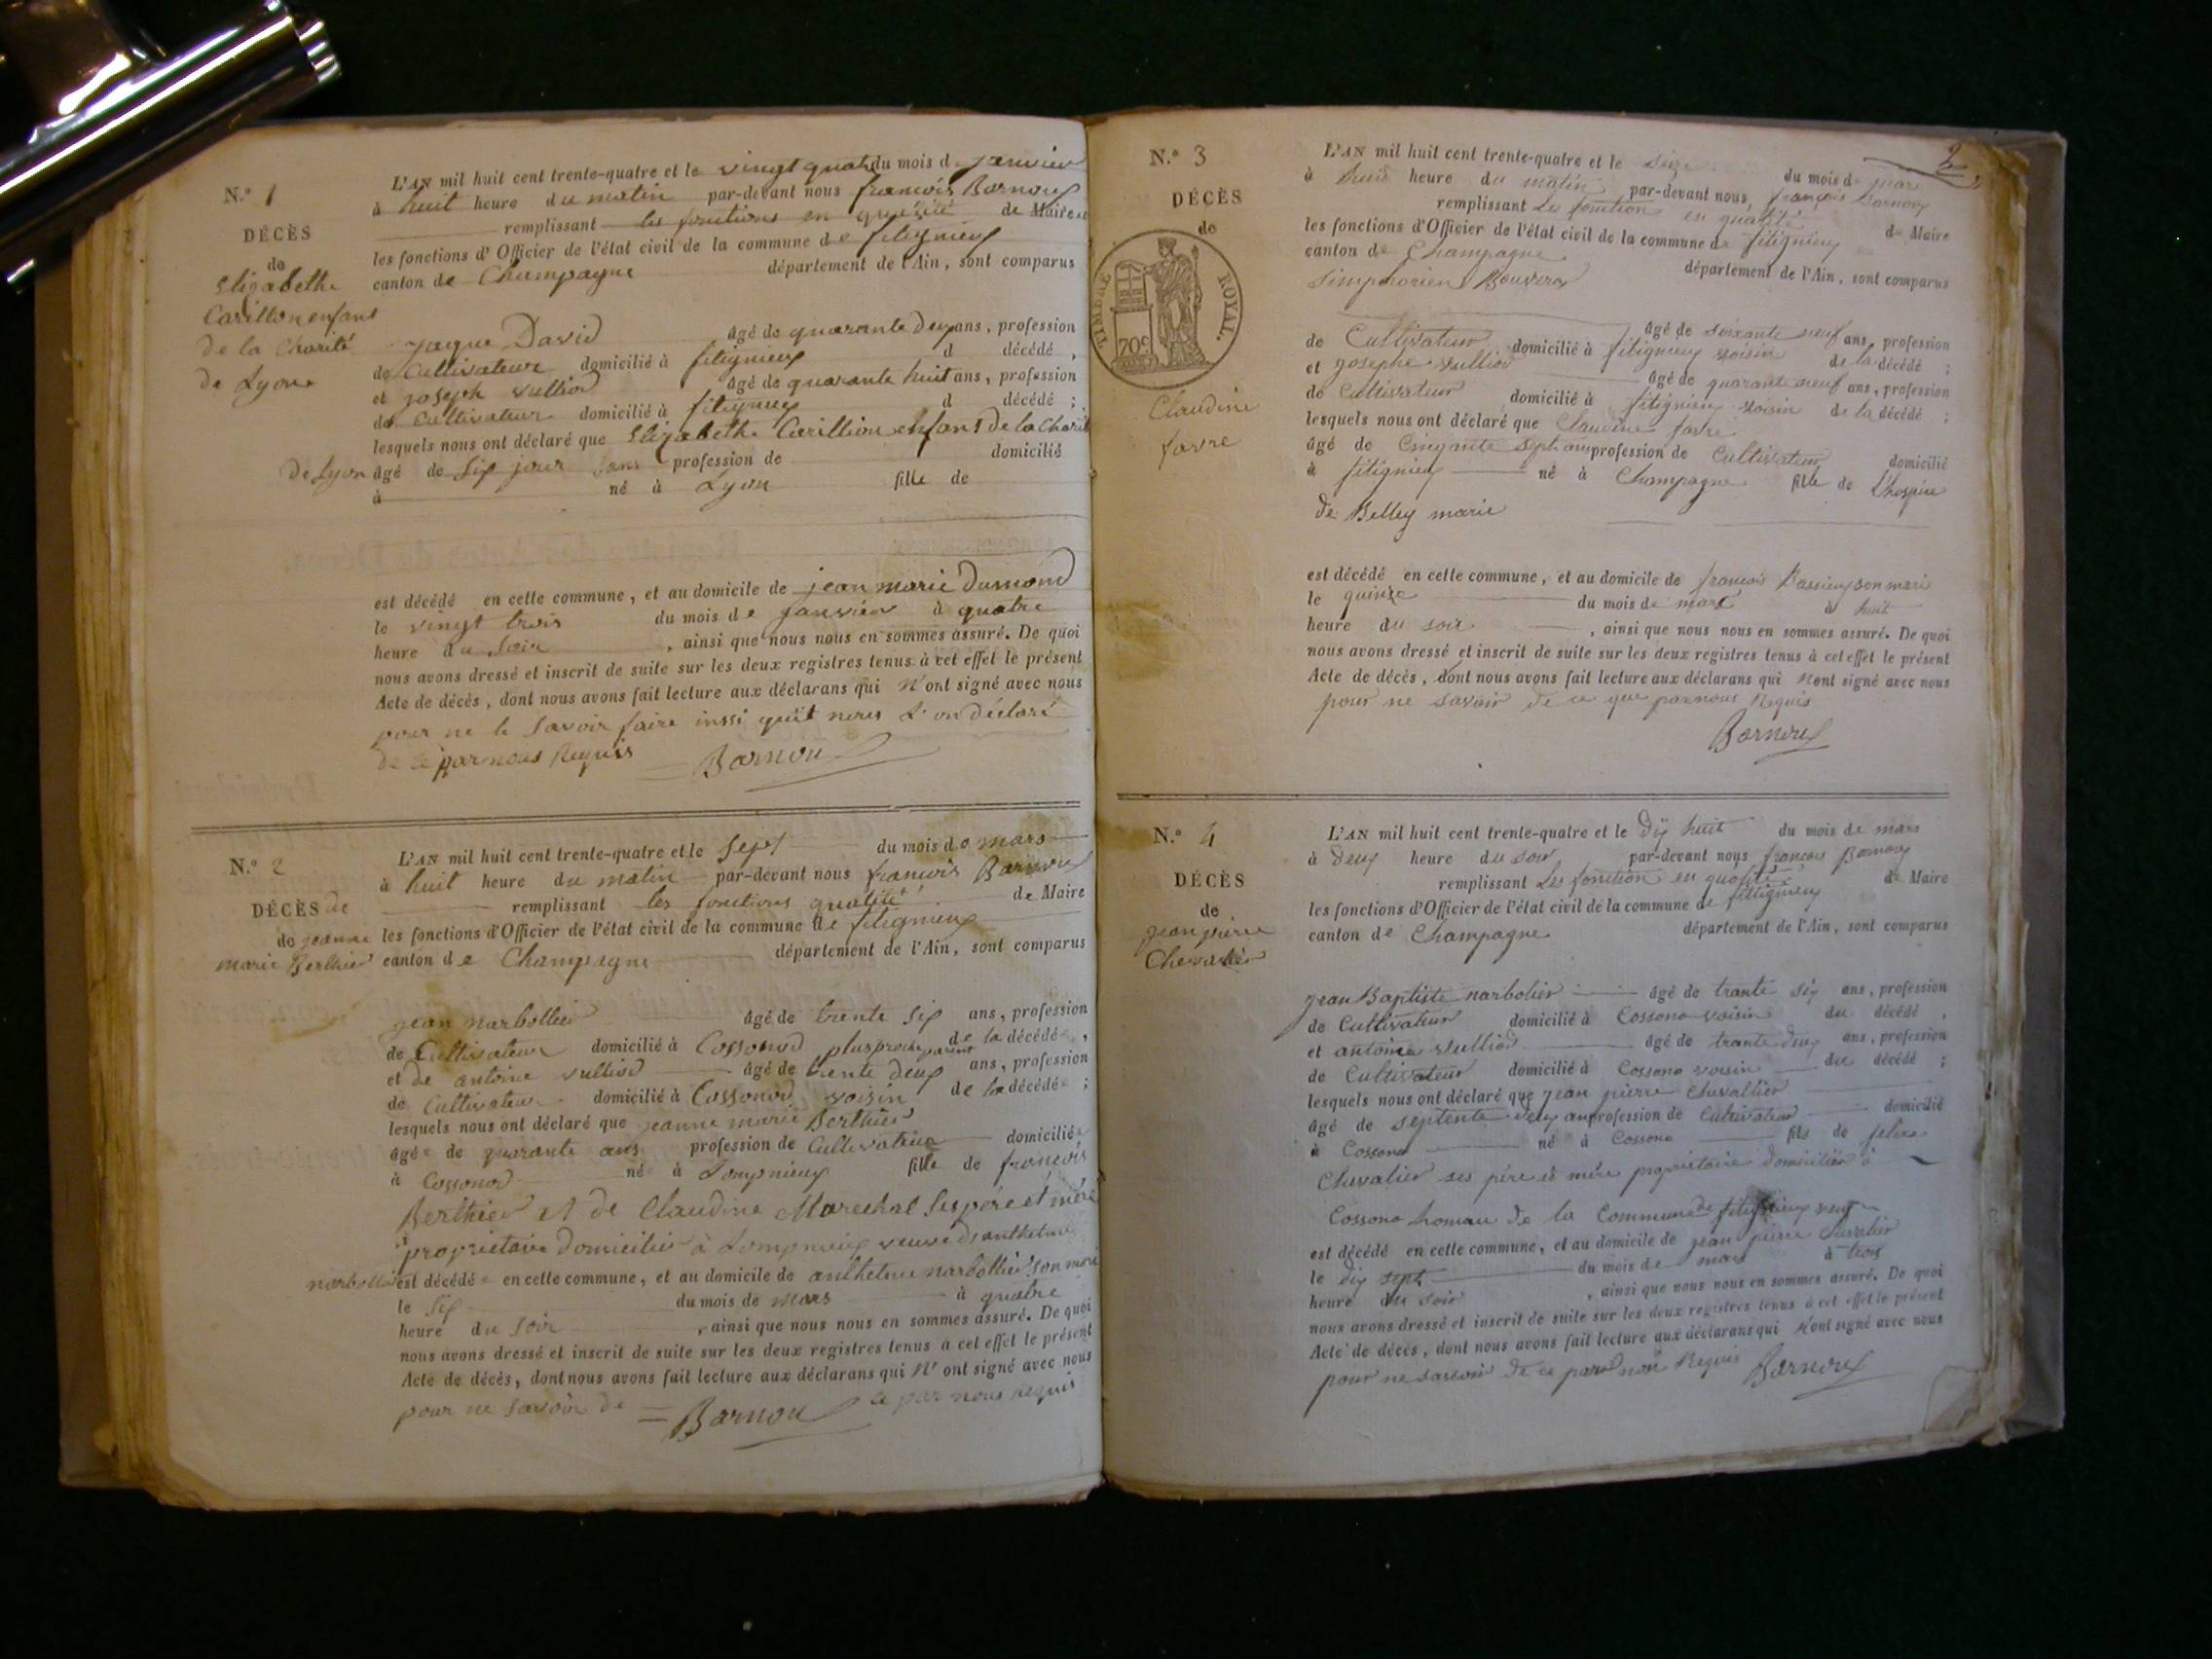 N.º 1
DÉCÈS
de
Elizabethe
Carillon enfant
de la Charité
de Lyon
L'AN mil huit cent trente-quatre et le vingt quatre du mois de janvier
à huit heure du matin par-devant nous francois Barnoux
remplissant les fonctions en qualité de Maire
les fonctions d'Officier de l'état civil de la commune de fitignieux
canton de Champagne département de l'Ain, sont comparus
jaque David âgé de quarante deux ans, profession
de Cultivateur domicilié à fitignieux d décédé,
et joseph vulliod âgé de quarante huit ans, profession
de Cultivateur domicilié à fitignieux d décédé;
lesquels nous ont déclaré que Elizabethe Carillion enfant de la Charité
de Lyon âgé de six jour sans profession de domicilié
à né à Lyon fille de
est décédé en cette commune, et au domicile de jean marie Dumond
le vingt trois du mois de janvier à quatre
heure du soir, ainsi que nous nous en sommes assuré. De quoi
nous avons dressé et inscrit de suite sur les deux registres tenus à cet effet le présent
Acte de décès, dont nous avons fait lecture aux déclarans qui N'ont signé avec nous
pour ne le savoir faire inssi qu'it nous l'on déclaré
de ce par nous Requis Barnoux
N.º 2
DÉCÈS de
de jeanne
marie Berthier
L'AN mil huit cent trente-quatre et le sept du mois de mars
à huit heure du matin par-devant nous francois Barnoux
remplissant les fonctions qualité de Maire
les fonctions d'Officier de l'état civil de la commune de fitignieux
canton de Champagne département de l'Ain, sont comparus
jean narbollier âgé de trente six ans, profession
de Cultivateur domicilié à Cossonod plus proche parent de la décédée,
et de antoine vulliod âgé de trente deux ans, profession
de Cultivateur domicilié à Cossonod voisin de la décédée;
lesquels nous ont déclaré que jeanne marie Berthier
âgée de quarante ans profession de Cultivatrice domiciliée
à Cossonod née à Lompnieux fille de francois
Berthier et de Claudine Marechal ses pére et mére
propriétaire domicilié à Lompnieux veuve d'anthelme
narbollier est décédée en cette commune, et au domicile de anthelme narbollier son mari
le six du mois de mars à quatre
heure du soir, ainsi que nous nous en sommes assuré. De quoi
nous avons dressé et inscrit de suite sur les deux registres tenus à cet effet le présent
Acte de décès, dont nous avons fait lecture aux déclarans qui N'ont signé avec nous
pour ne savoir de ce par nous requis
Barnoux
2
N.º 3
DÉCÈS
de
TIMBRE ROYAL.
70c
Claudine
favre
L'AN mil huit cent trente-quatre et le seize du mois de mars
à huit heure du matin par-devant nous, françois Barnoux
remplissant les fonction en qualité de Maire
les fonctions d'Officier de l'état civil de la commune de fitignieux
canton de Champagne département de l'Ain, sont comparus
simphorien Bouvier
de Cultivateur domicilié à fitignieux voisin âgé de soixante neuf ans, profession
et josephe vulliod de la décédé;
de Cultivateur domicilié à fitignieux voisin âgé de quarante neuf ans, profession
lesquels nous ont déclaré que Claudine favre de la décédé;
âgé de Cinquante sept ans profession de Cultivateur domicilié
à fitignieux né à Champagne fille de L'hospice
de Belley marie
est décédé en cette commune, et au domicile de francois son mari
le quinze du mois de mars à huit
heure du soir, ainsi que nous nous en sommes assuré. De quoi
nous avons dressé et inscrit de suite sur les deux registres tenus à cet effet le présent
Acte de décès, dont nous avons fait lecture aux déclarans qui Nont signé avec nous
pour ne savoir de ce que par nous Requis
Barnoux
N.º 4
DÉCÈS
de
jean pierre
Chevalier
L'AN mil huit cent trente-quatre et le dix huit du mois de mars
à deux heure du soir par-devant nous francois Barnoux
remplissant les fonction en qualité de Maire
les fonctions d'Officier de l'état civil de la commune de fitignieux
canton de Champagne département de l'Ain, sont comparus
jean Baptiste narbolier âgé de trante six ans, profession
de Cultivateur domicilié à Cossono voisin du décédé,
et antoine vulliod âgé de trante deux ans, profession
de Cultivateur domicilié à Cossono voisin du décédé;
lesquels nous ont déclaré que jean pierre Chevallier
âgé de septente deux an profession de Cultivateur domicilié
à Cossono né à Cossono fils de felix
Chevalier ses pére et mére proprietaire domicilier à
Cossono hameau de la Commune de fitignieux veuf
est décédé en cette commune, et au domicile de jean pierre Chevalier
le dix sept du mois de mars à trois
heure du soir, ainsi que nous nous en sommes assuré. De quoi
nous avons dressé et inscrit de suite sur les deux registres tenus à cet effet le présent
Acte de décès, dont nous avons fait lecture aux déclarans qui N'ont signé avec nous
pour ne savoir de ce par nou Requis Barnoux